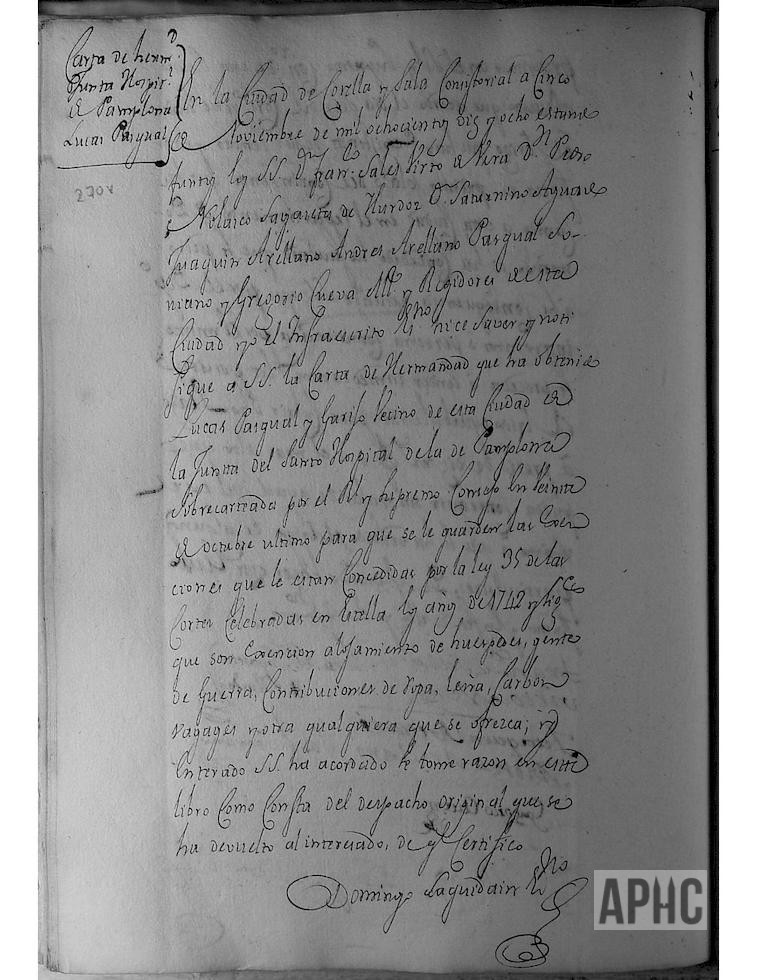 Carta de herm.d
Junta Hospit.l
de Pamplona
Lucas Pasqual
270v
En la Ciudad de Corella y Sala Consistorial a Cinco
de Noviembre de mil ochocientos diez y ocho estante
juntos los SS. D.n Fran.co Sales Virto de Vera D.n Pedro
Nolasco Sagaseta de Ylurdoz D.n Saturnino Aguado
Juaquin Arellano Andres Arellano Pasqual So-
niano y Gregorio Cueva Al.de y Regidores de esta
Ciudad yo el Infraescrito Ss.no hice saver y noti
fique a SS. la Carta de Hermandad que ha obtenido
Lucas Pasqual y Garijo Vecino de esta Ciudad de
la Juntta del Santo Hospital de la de Pamplona
Sobrecarteada por el Rl y Supremo Consejo En Veinte
de octubre ultimo para que se le guarden las Exen
ciones que le estan Concedidas por la ley 35 de las
Cortes Celebradas en Estella los años de 1742 y sig.tes
que son Exencion alojamiento de huespedes, gente
de Guerra, Contribuciones de ropa, leña, Carbon
vagages y otra qualquiera que se ofrezca; y
Enterado SS. ha acordado se tome razon en este
libro Como Consta del despacho original que se
ha devuelto al interesado, de q.e Certifico
Domingo Laquidain Es.no
APHC